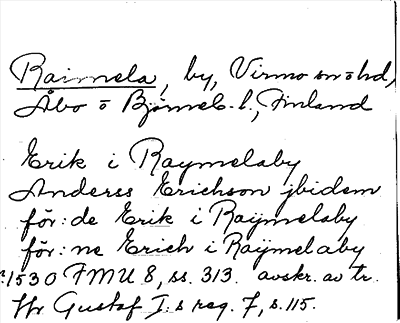 Raimela, by, Virmo sn o hd,
Åbo o Björneb. l., Finland
Erik i Raymelaby
Anderss Erichson jbidem
för: de Erik i Raÿmelaby
för: ne Erich i Raÿmelaby
1530 FMU 8, ss. 313. avskr. av tr.
Hr Gustaf I:s reg. 7, s. 115.